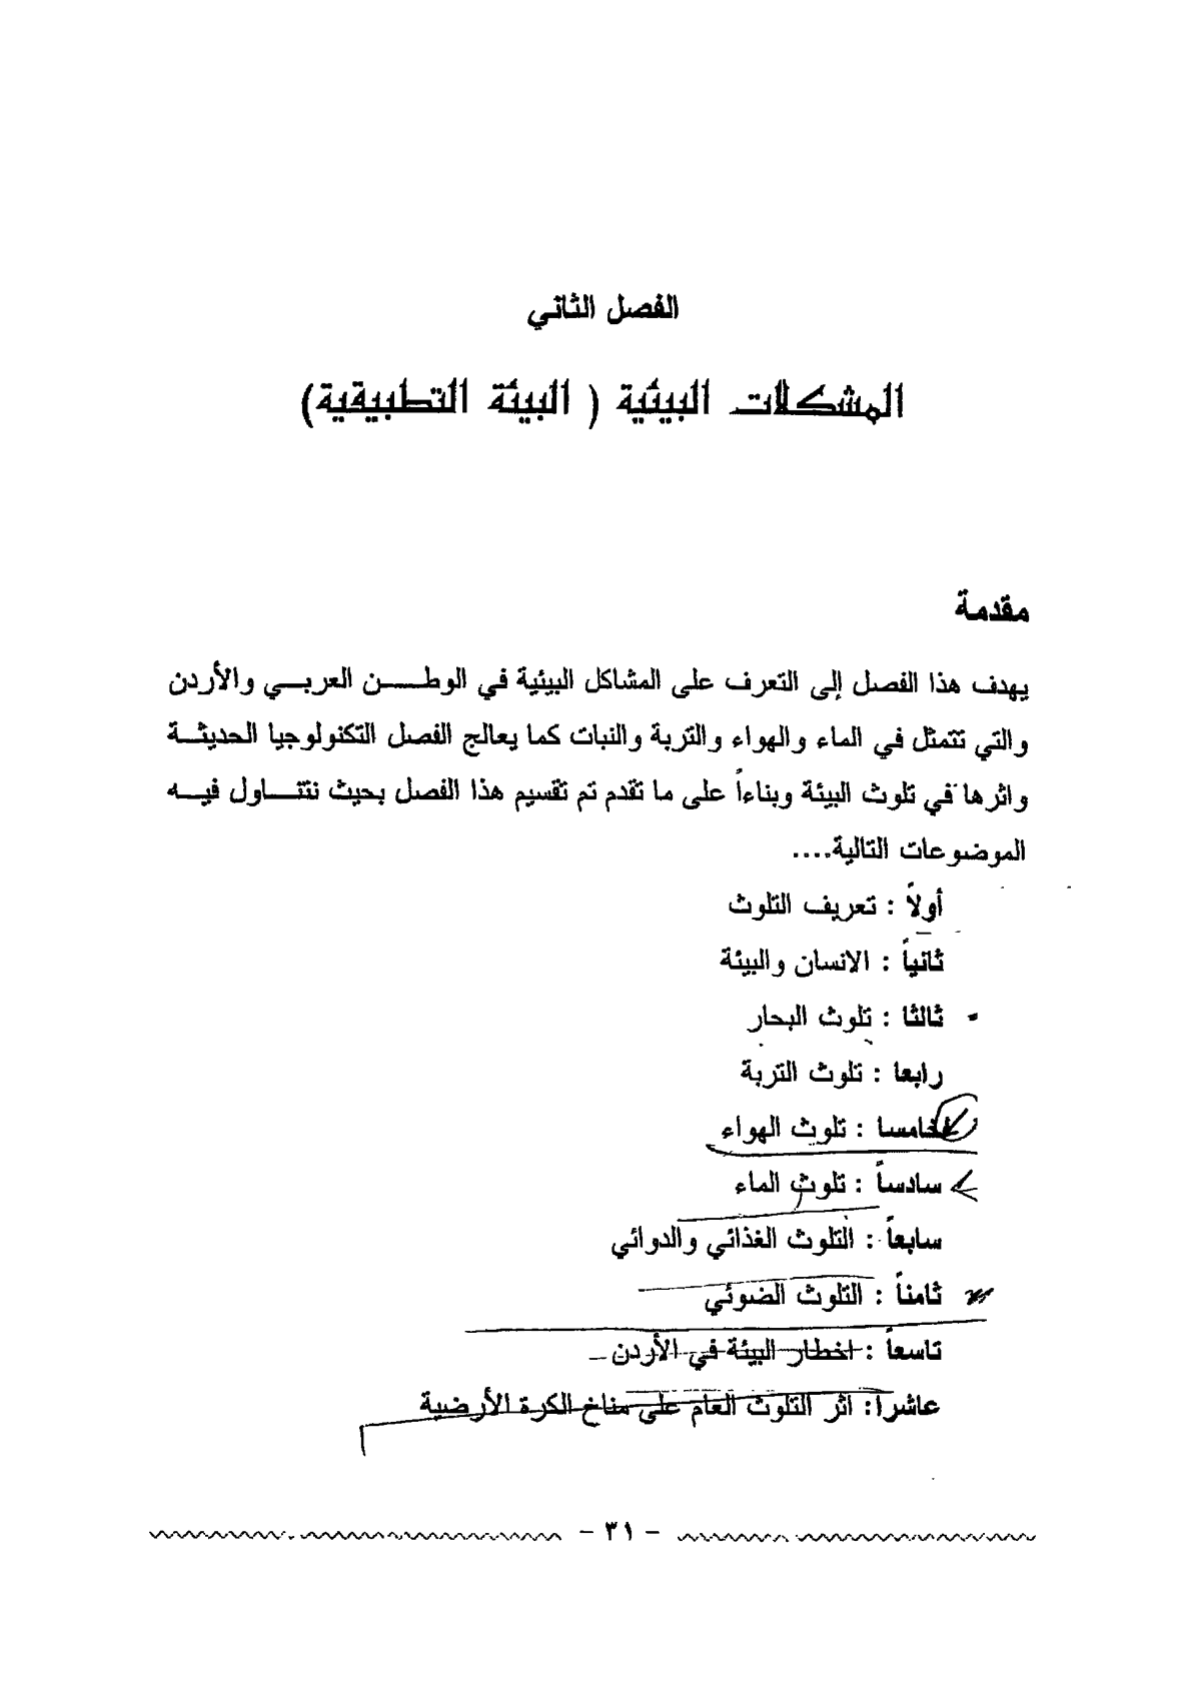 الفصل الثاني
المشكلات البيئية ( البيئة التطبيقية)
مقدمة
يهدف هذا الفصل إلى التعرف على المشاكل البيئية في الوطن العربي والأردن
والتي تتمثل في الماء والهواء والتربة والنبات كما يعالج الفصل التكنولوجيا الحديثة
واثرها في تلوث البيئة وبناءاً على ما تقدم تم تقسيم هذا الفصل بحيث نتناول فيه
الموضوعات التالية....
أولاً : تعريف التلوث
ثانياً : الانسان والبيئة
ثالثا : تلوث البحار
رابعا : تلوث التربة
خامسا : تلوث الهواء
سادساً : تلوث الماء
سابعاً : التلوث الغذائي والدوائي
ثامناً : التلوث الضوئي
تاسعاً : اخطار البيئة في الأردن
عاشرا: اثر التلوث العام على مناخ الكرة الأرضية
- ٣١ -